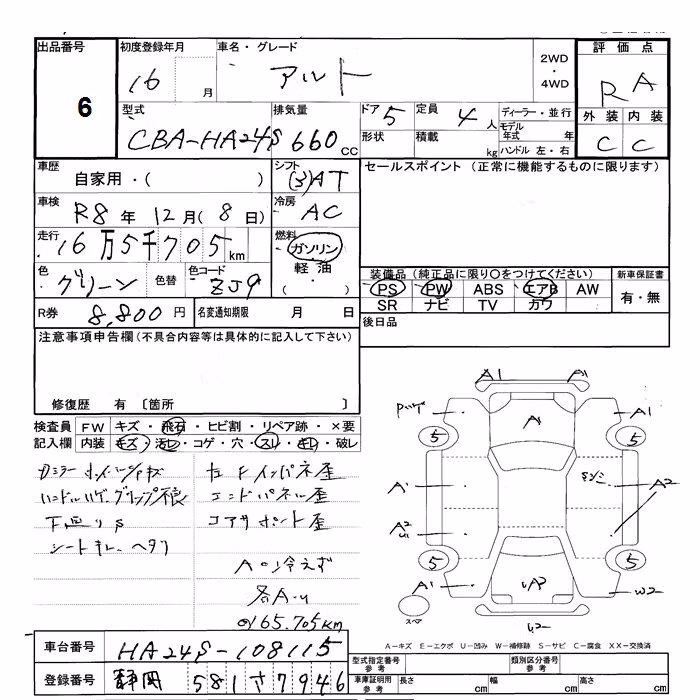 出品番号
6
初度登録年月
16 月
車名・グレード
アルト
2WD
・
4WD
評価点
RA
外装 内装
C C
型式
CBA-HA24S
排気量
660 cc
ドア 5
定員 4 人
形状
積載 kg
ディーラー・並行
モデル年式 年
ハンドル 左・右
車歴
自家用・( )
シフト
(3)AT
セールスポイント (正常に機能するものに限ります)
車検
R8年 12月(8日)
冷房
AC
走行
16万5千705 km
燃料
ガソリン
軽油
( ・ )
色
グリーン
色替
色コード
ZJ9
装備品(純正品に限り○をつけてください)
PS PW ABS エアB AW
SR ナビ TV カワ
新車保証書
有・無
R券 8,800円
名変通知期限 月 日
後日品
注意事項申告欄(不具合内容等は具体的に記入して下さい)
修復歴 有 〔箇所 〕
検査員記入欄
FW キズ・飛石・ヒビ割・リペア跡・×要
内装 キズ・汚レ・コゲ・穴・スレ・キレ・破レ
ハンドルハゲ、グリップ不良
下廻りS
シートキレ、ヘタリ
左Fインパネ歪
エンドパネル歪
コアサポート歪
AC冷えず
各A-U
165.705KM
A1 A1
A A1
5 5
A1
A2
A2
U1
5 5
A1 W2
スペア
U2
A-キズ E-エクボ U-凹み W-補修跡 S-サビ C-腐食 XX-交換済
車台番号 HA24S-108115
登録番号 静岡 581 さ 7946
型式指定番号 参考
類別区分番号 参考
車庫証明用 参考
長さ cm
幅 cm
高さ cm